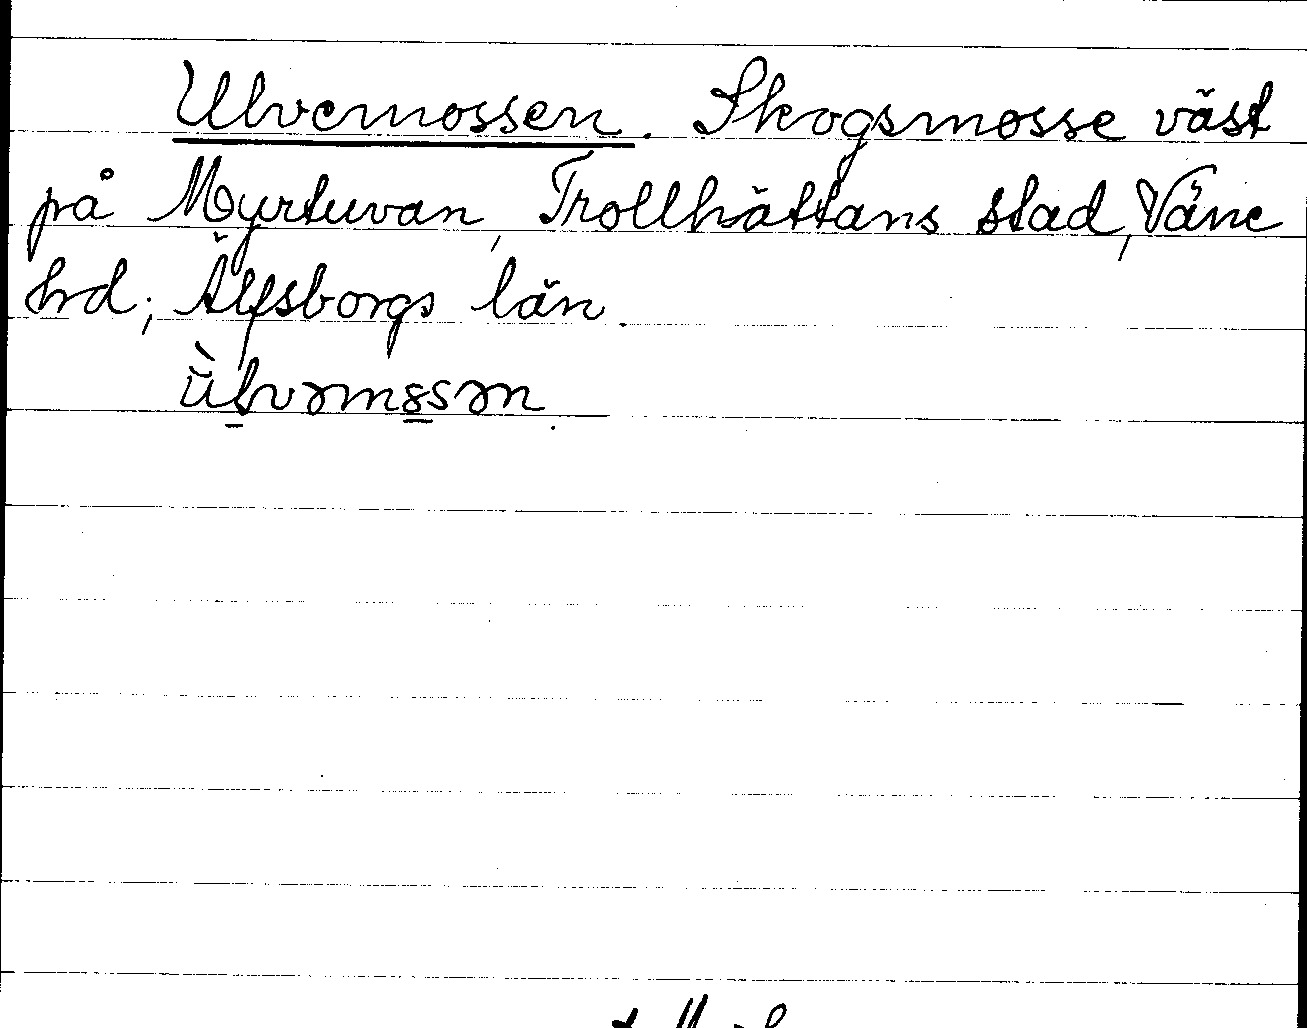 Ulvemossen. Skogsmosse väst
på Myrtuvan, Trollhättans stad, Väne
hrd; Älfsborgs län.